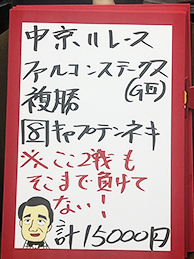 中京11レース
ファルコンステークス
(GⅢ)
複勝
⑧キャプテンネキ
※ここ2戦も
そこまで負けて
ない!
計15000円